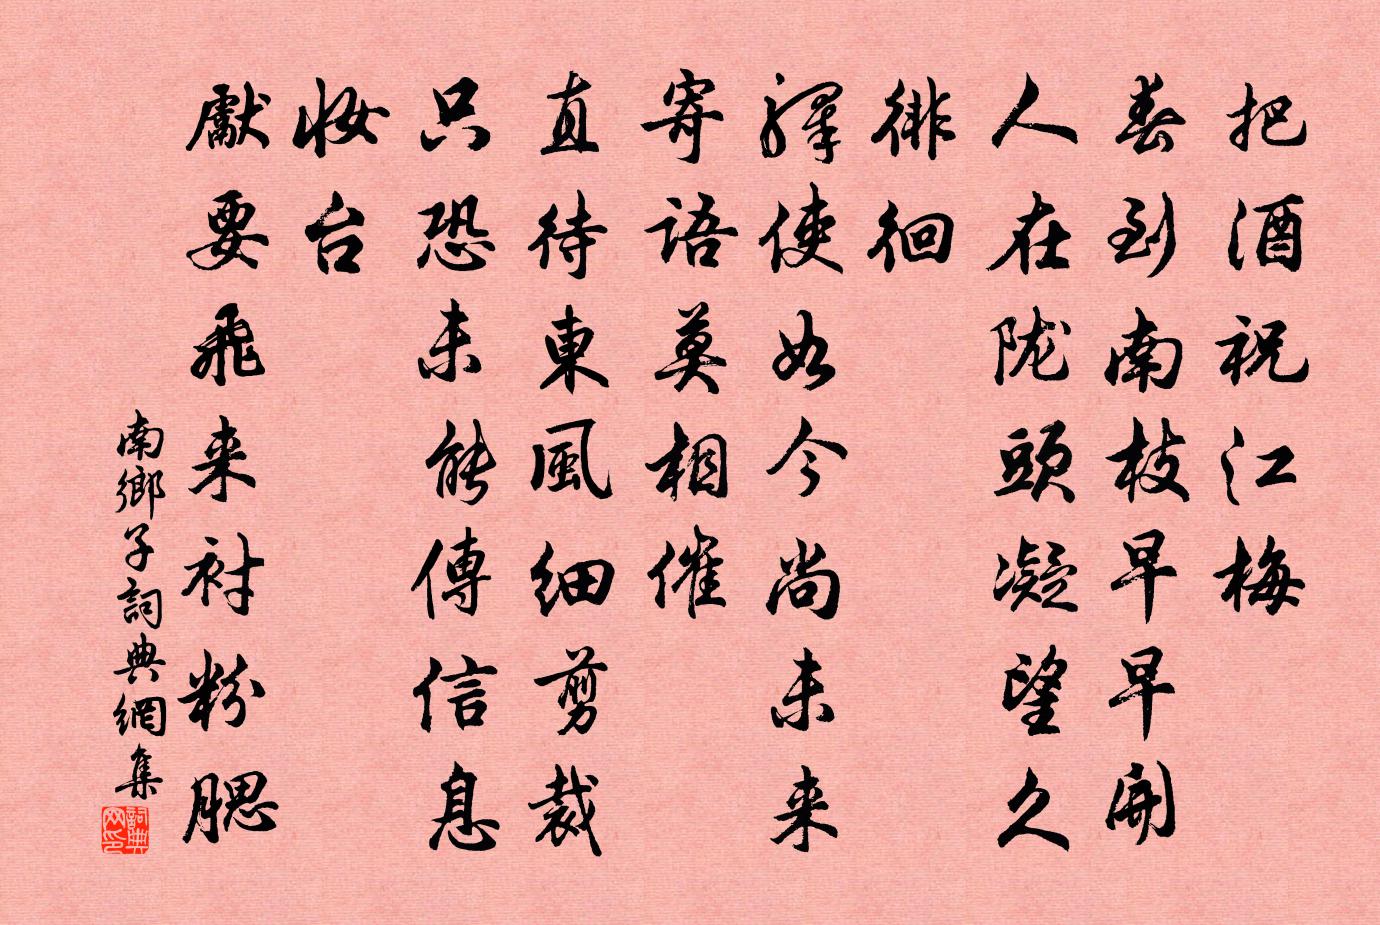 把酒祝江梅
春到南枝早早開
人在陇頭凝望久
徘徊
驛使如今尚未来
寄語莫相催
直待東風細剪裁
只恐未能傳信息
妝台
獻要飛来衬粉腮
南鄉子詞典網集
詞典网印